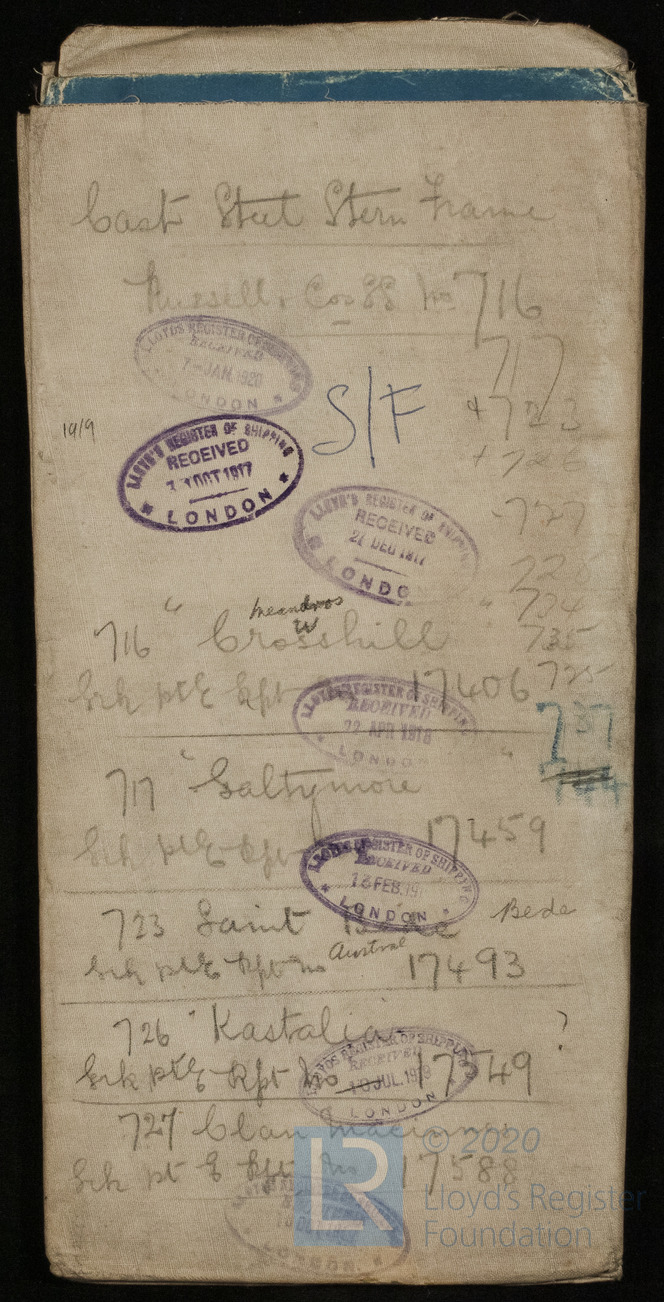 Cast Steel Stern Frame
Russell & Cos SS No 716
717
LLOYD'S REGISTER OF SHIPPING
RECEIVED
7 - JAN. 1920
LONDON
S/F
+ 723
+ 726
1919
LLOYD'S REGISTER OF SHIPPING
RECEIVED
31 OCT 1917
LONDON
LLOYD'S REGISTER OF SHIPPING
RECEIVED
21 DEC 1917
LONDON
727
" 734
Meandros
716 "Crosshill" 735
Grk pt E Rpt 17406 725
LLOYD'S REGISTER OF SHIPPING
RECEIVED
22 APR 1918
LONDON
737
744
717 "Galtymore"
Grk pt E Rpt 17459
LLOYD'S REGISTER OF SHIPPING
RECEIVED
LONDON
723 Saint Bede Bede
Austral
Grk pt E Rpt No 17493
726 "Kastalia" ?
Grk pt E Rpt No 17549
LLOYD'S REGISTER OF SHIPPING
RECEIVED
LONDON
727 Clan
Grk pt E Rpt No 17588
© 2020
Lloyd's Register
Foundation
LONDON